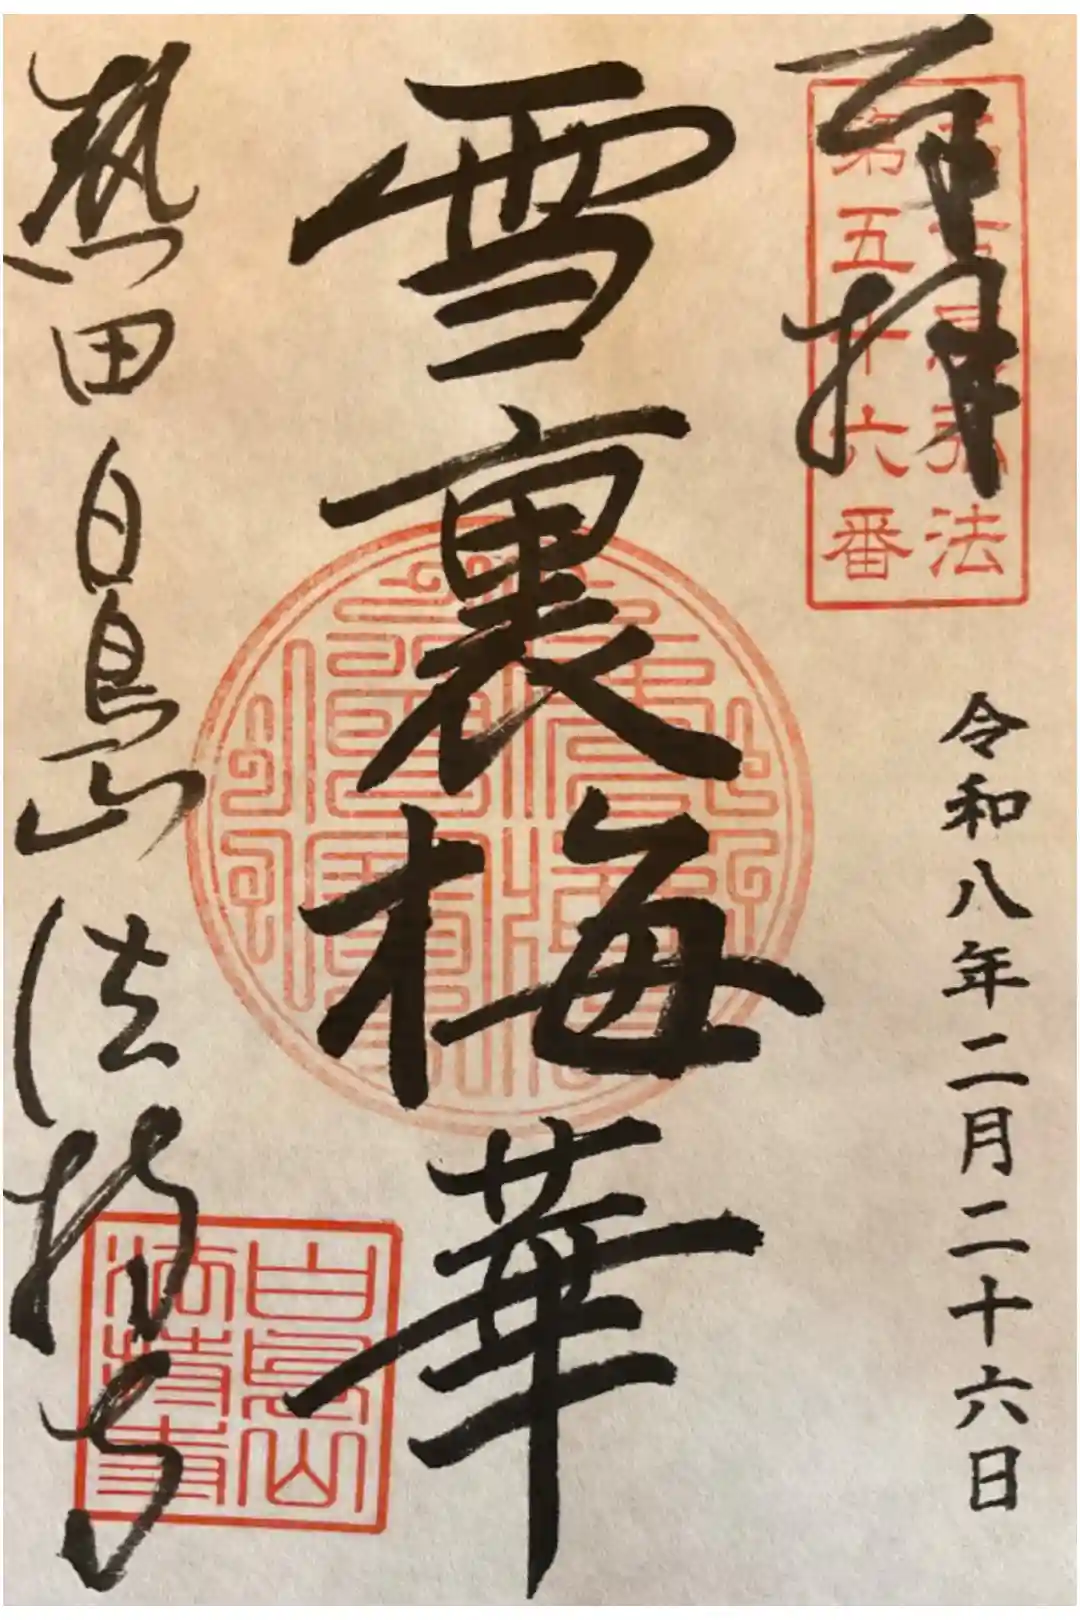 拝
弘法
第五十六番
令和八年二月二十六日
雪裏梅華
熱田白鳥山法持寺
白鳥山
法持寺